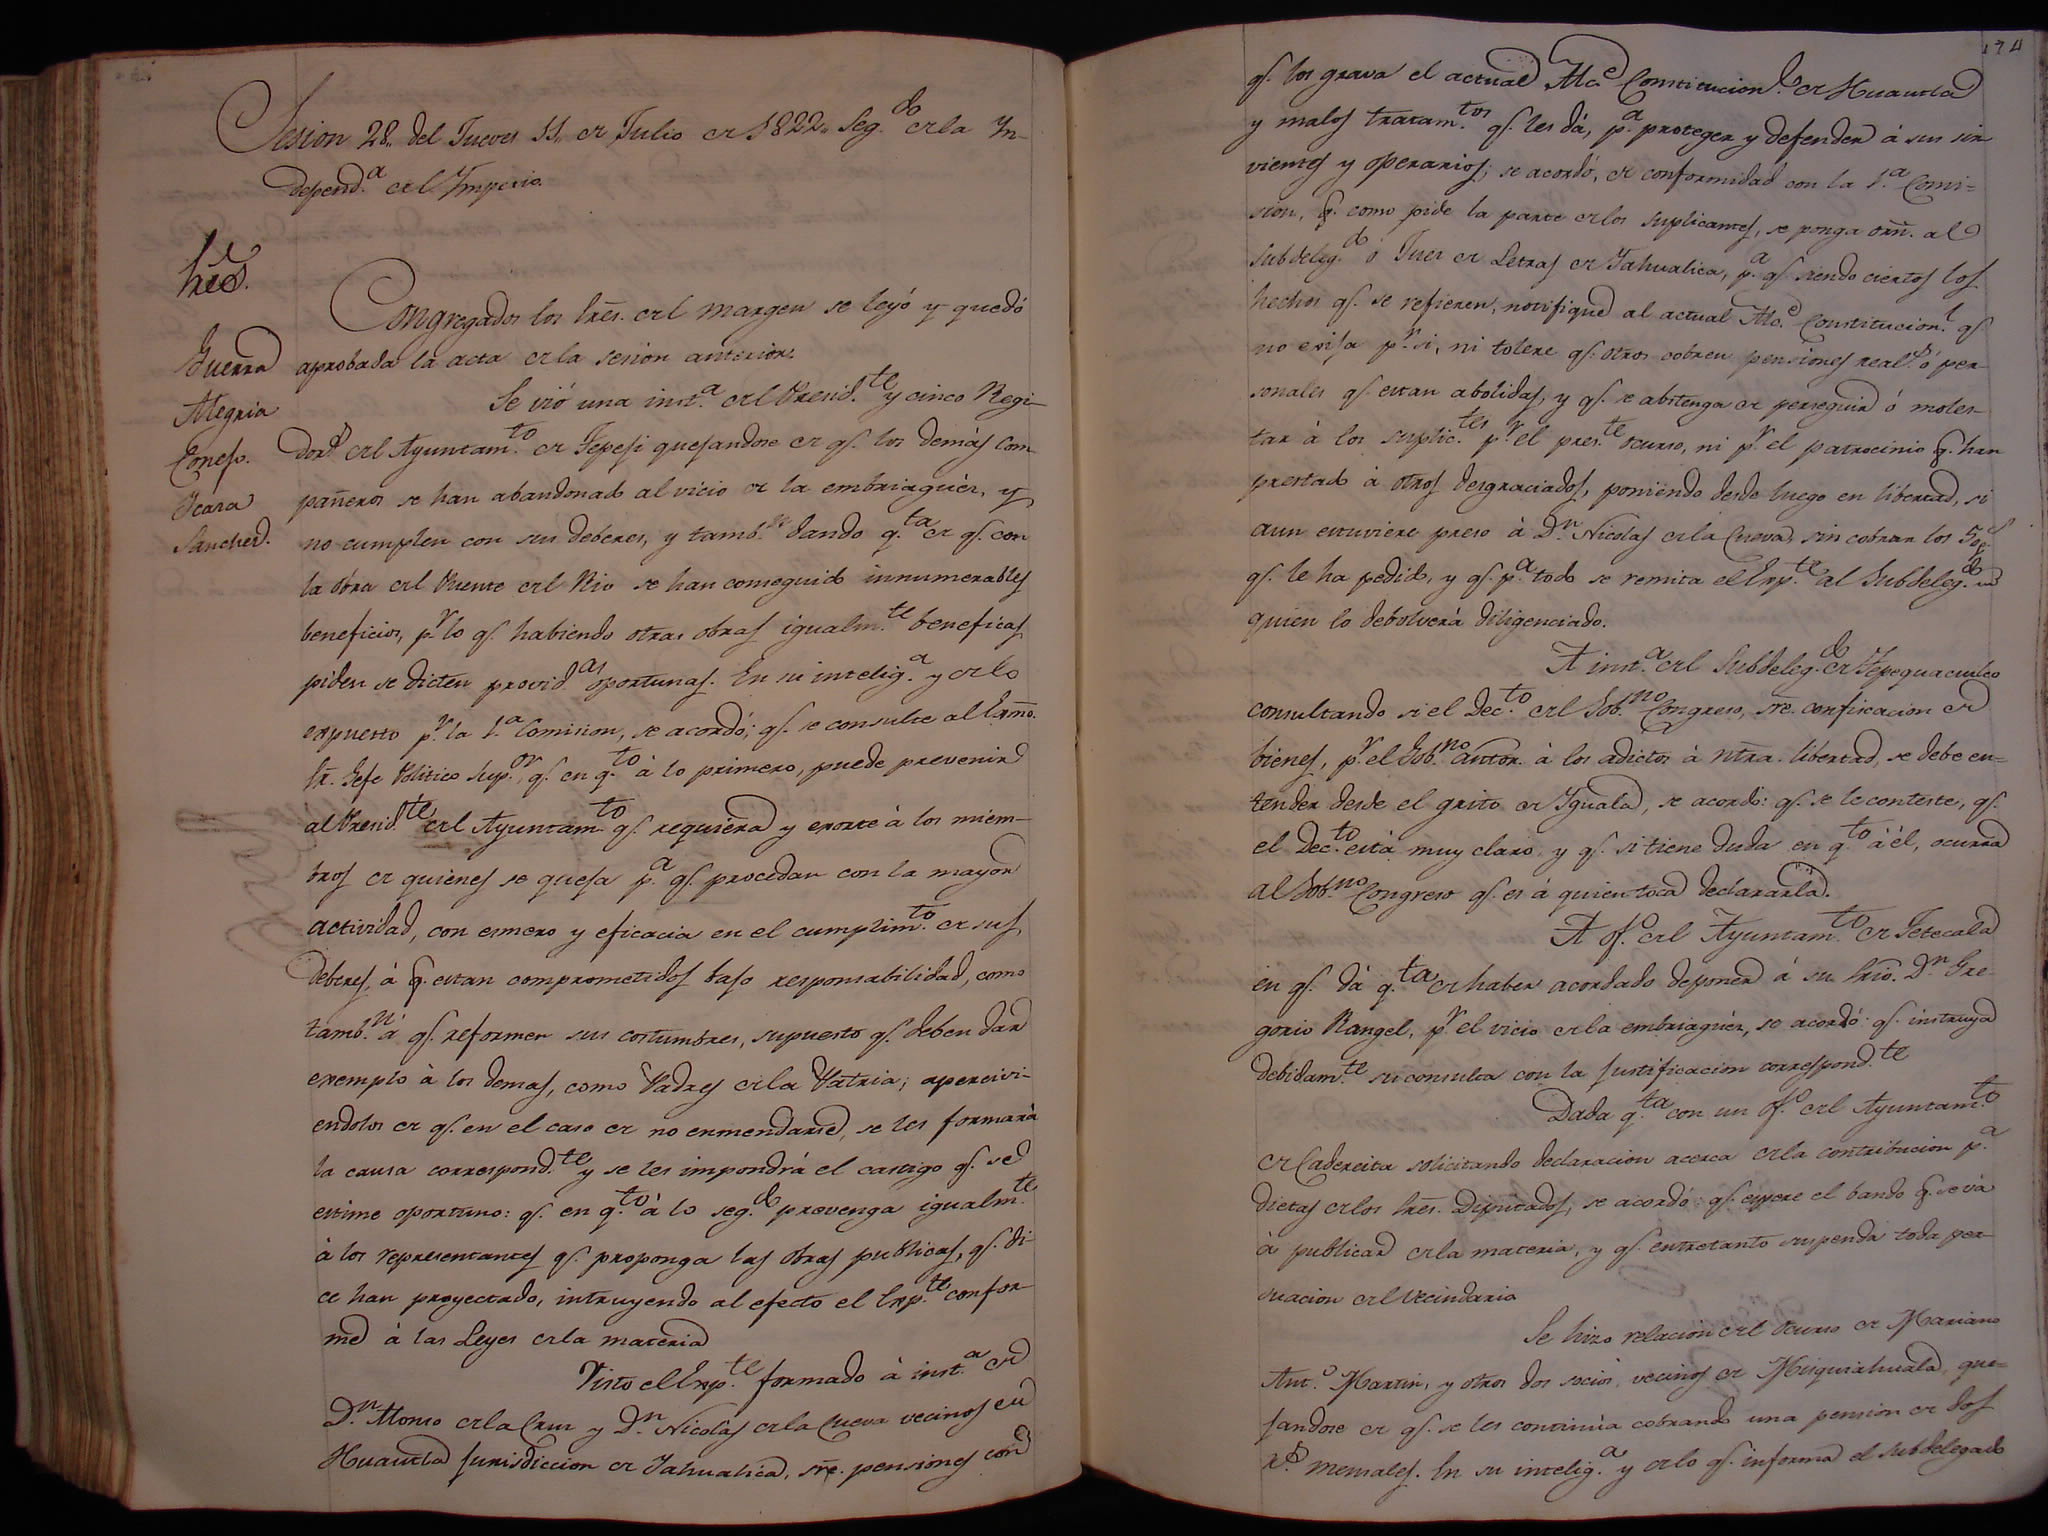 Sesion 28,, del Jueves 11,, de Julio de 1822,, Seg.do de la In-
depend.a del Imperio.
Sres.
Guerra
Alegria
Conejo.
Icaza
Sanchez.
Congregados los Sres. del margen se leyó y quedó
aprobada la acta de la sesion anterior.
Se vió una inst.a del Presid.te y cinco Regi-
dor.s del Ayuntam.to de Tepeji quejandose de q.e los demás com
pañeros se han abandonado al vicio de la embriaguéz, y
no cumplen con sus deberes, y tamb.n dando q.ta de q.e con
la obra del Puente del Rio se han conseguido innumerables
beneficios, p.r lo q.e habiendo otras obras igualm.te beneficas
piden se dicten provid.as oportunas. En su intelig.a y de lo
expuesto p.r la 1.a Comision, se acordó; q.e se consulte al Exmo.
Sr. Jefe Politico Sup.or, q.e en q.to à lo primero, puede prevenir
al Presid.te del Ayuntam.to q.e requiera y exorte à los miem-
bros de quienes se queja p.a q.e procedan con la mayor
actividad, con esmero y eficacia en el cumplim.to de sus
deberes, à q.e estan comprometidos bajo responsabilidad, como
tamb.n á q.e reformen sus costumbres, supuesto q.e deben dar
exemplo à los demas, como Padres de la Patria; apercivi-
endolos de q.e en el caso de no enmendarse, se les formará
la causa correspond.te y se les impondrá el castigo q.e se
estime oportuno: q.e en q.to à lo seg.do prevenga igualm.te
à los representantes q.e proponga las obras publicas, q.e di-
ce han proyectado, intruyendo al efecto el Exp.te confor-
me à las Leyes de la materia
Visto el Exp.te formado à inst.a de
D.n Alonso de la Cruz y D.n Nicolàs de la Cueva vecinos en
Huautla jurisdiccion de Yahualica, sre. pensiones con
174
q.e los grava el actual Alc.e Constitucion.l de Huautla
y malos tratam.tos q.e les dá, p.a proteger y defender à sus sir
vientes y operarios; se acordó, de conformidad con la 1.a Comi=
sion, q.e como pide la parte de los suplicantes, se ponga orn. al
Subdeleg.do ó Juez de Letras de Yahualica, p.a q.e siendo ciertos los
hechos q.e se refieren, notifique al actual Alc.e Constitucion.l q.e
no exija p.r si, ni tolere q.e otros cobren pensiones real.s ó per-
sonales q.e estan abolidas, y q.e se abstenga de perseguir ó moles-
tar à los suplic.tes p.r el pres.te ocurso, ni p.r el patrocinio q.e han
prestado à otros desgraciados, poniendo desde luego en libertad, si
aun estuviere preso à D.n Nicolas de la Cueva, sin cobrar los 50p.s
q.e le ha pedido, y q.e p.a todo se remita el Exp.te al Subdeleg.do
quien lo debolverà diligenciado.
A inst.a del Subdeleg.do de Tepequacuilco
consultando si el Dec.to del Sob.no Congreso, sre. confiscacion de
bienes, p.r el Gob.no antor. à los adictos à ntra. libertad, se debe en=
tender desde el grito de Iguala, se acordo: q.e se le conteste, q.e
el Dec.to està muy claro y q.e si tiene duda en q.to à él, ocurra
al Sob.no Congreso q.e es à quien toca declararla.
A of.o del Ayuntam.to de Tetecala
en q.e dà q.ta de haber acordado deponer à su Srio. D.n Gre-
gorio Rangel, p.r el vicio de la embriaguéz, se acordó: q.e instruya
debidam.te su consulta con la justificacion correspond.te
Dada q.ta con un of.o del Ayuntam.to
de Cadereita solicitando declaracion acerca de la contribucion p.a
dietas de los Sres. Diputados, se acordó: q.e espere el bando q.e se và
à publicar de la materia, y q.e entretanto suspenda toda per-
suacion del Vecindario
Se hizo relacion del Ocurso de Mariano
Ant.o Martin, y otros dos socios, vecinos de Misquiahuala, que=
jandose de q.e se les continúa cobrando una pension de dos
r.s mensales. En su intelig.a y de lo q.e informa el Subdelegado